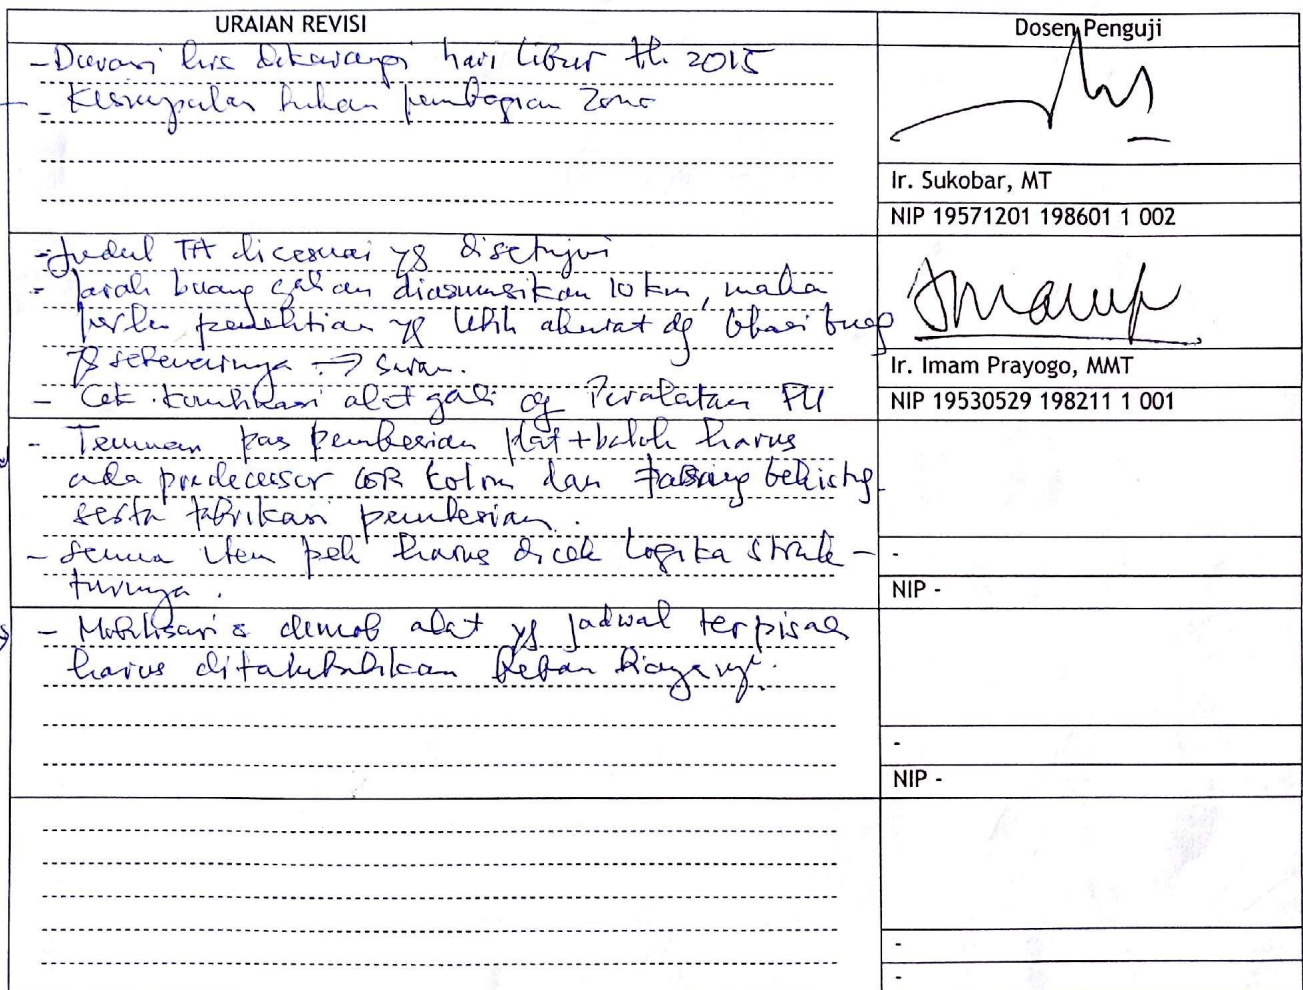 URAIAN REVISI
Dosen Penguji
- Durasi hrs dikurangi hari libur th 2015
- Kesimpulan bukan pembagian Zona
Ir. Sukobar, MT
NIP 19571201 198601 1 002
- Judul TA disesuai yg disetujui
- Jarak buang galian diasumsikan 10 km, maka
perlu penelitian yg lebih akurat dg lokasi buang
yg sebenarnya → saran.
- Cek kombinasi alat gali dg Peralatan PU
Ir. Imam Prayogo, MMT
NIP 19530529 198211 1 001
- Temuan pas pembesian plat + balok harus
ada predecessor COR kolom dan pasang bekisting
serta fabrikasi pembesian.
- Semua item pek harus dicek logika struk -
turnya.
-
NIP -
- Mobilisasi & demob alat yg jadwal terpisah
harus ditambahkan beban biayanya.
-
NIP -
-
-